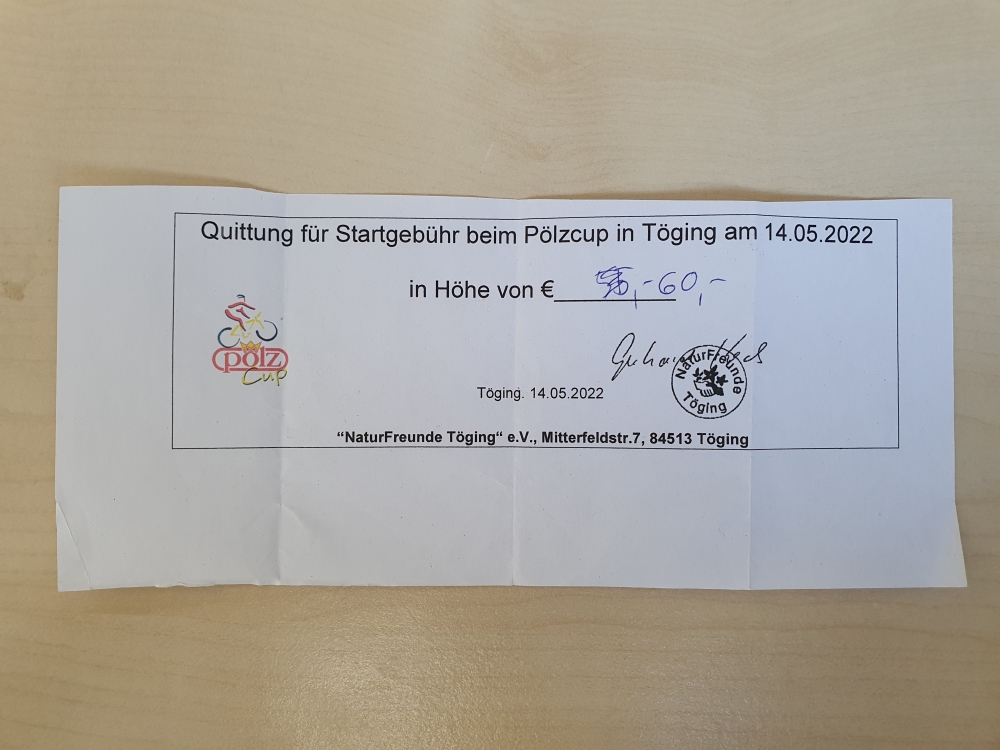 Quittung für Startgebühr beim Pölzcup in Töging am 14.05.2022
in Höhe von € 60,-
pölz
Cup
Töging. 14.05.2022
NaturFreunde
Töging
“NaturFreunde Töging“ e.V., Mitterfeldstr.7, 84513 Töging